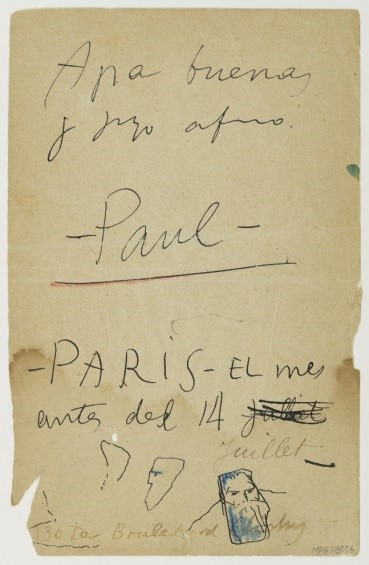 Apa buenas
y suyo afmo.
-Paul-
-PARIS- EL mes
antes del 14 Juillet
Juillet
130 ter Boulevard Clichy